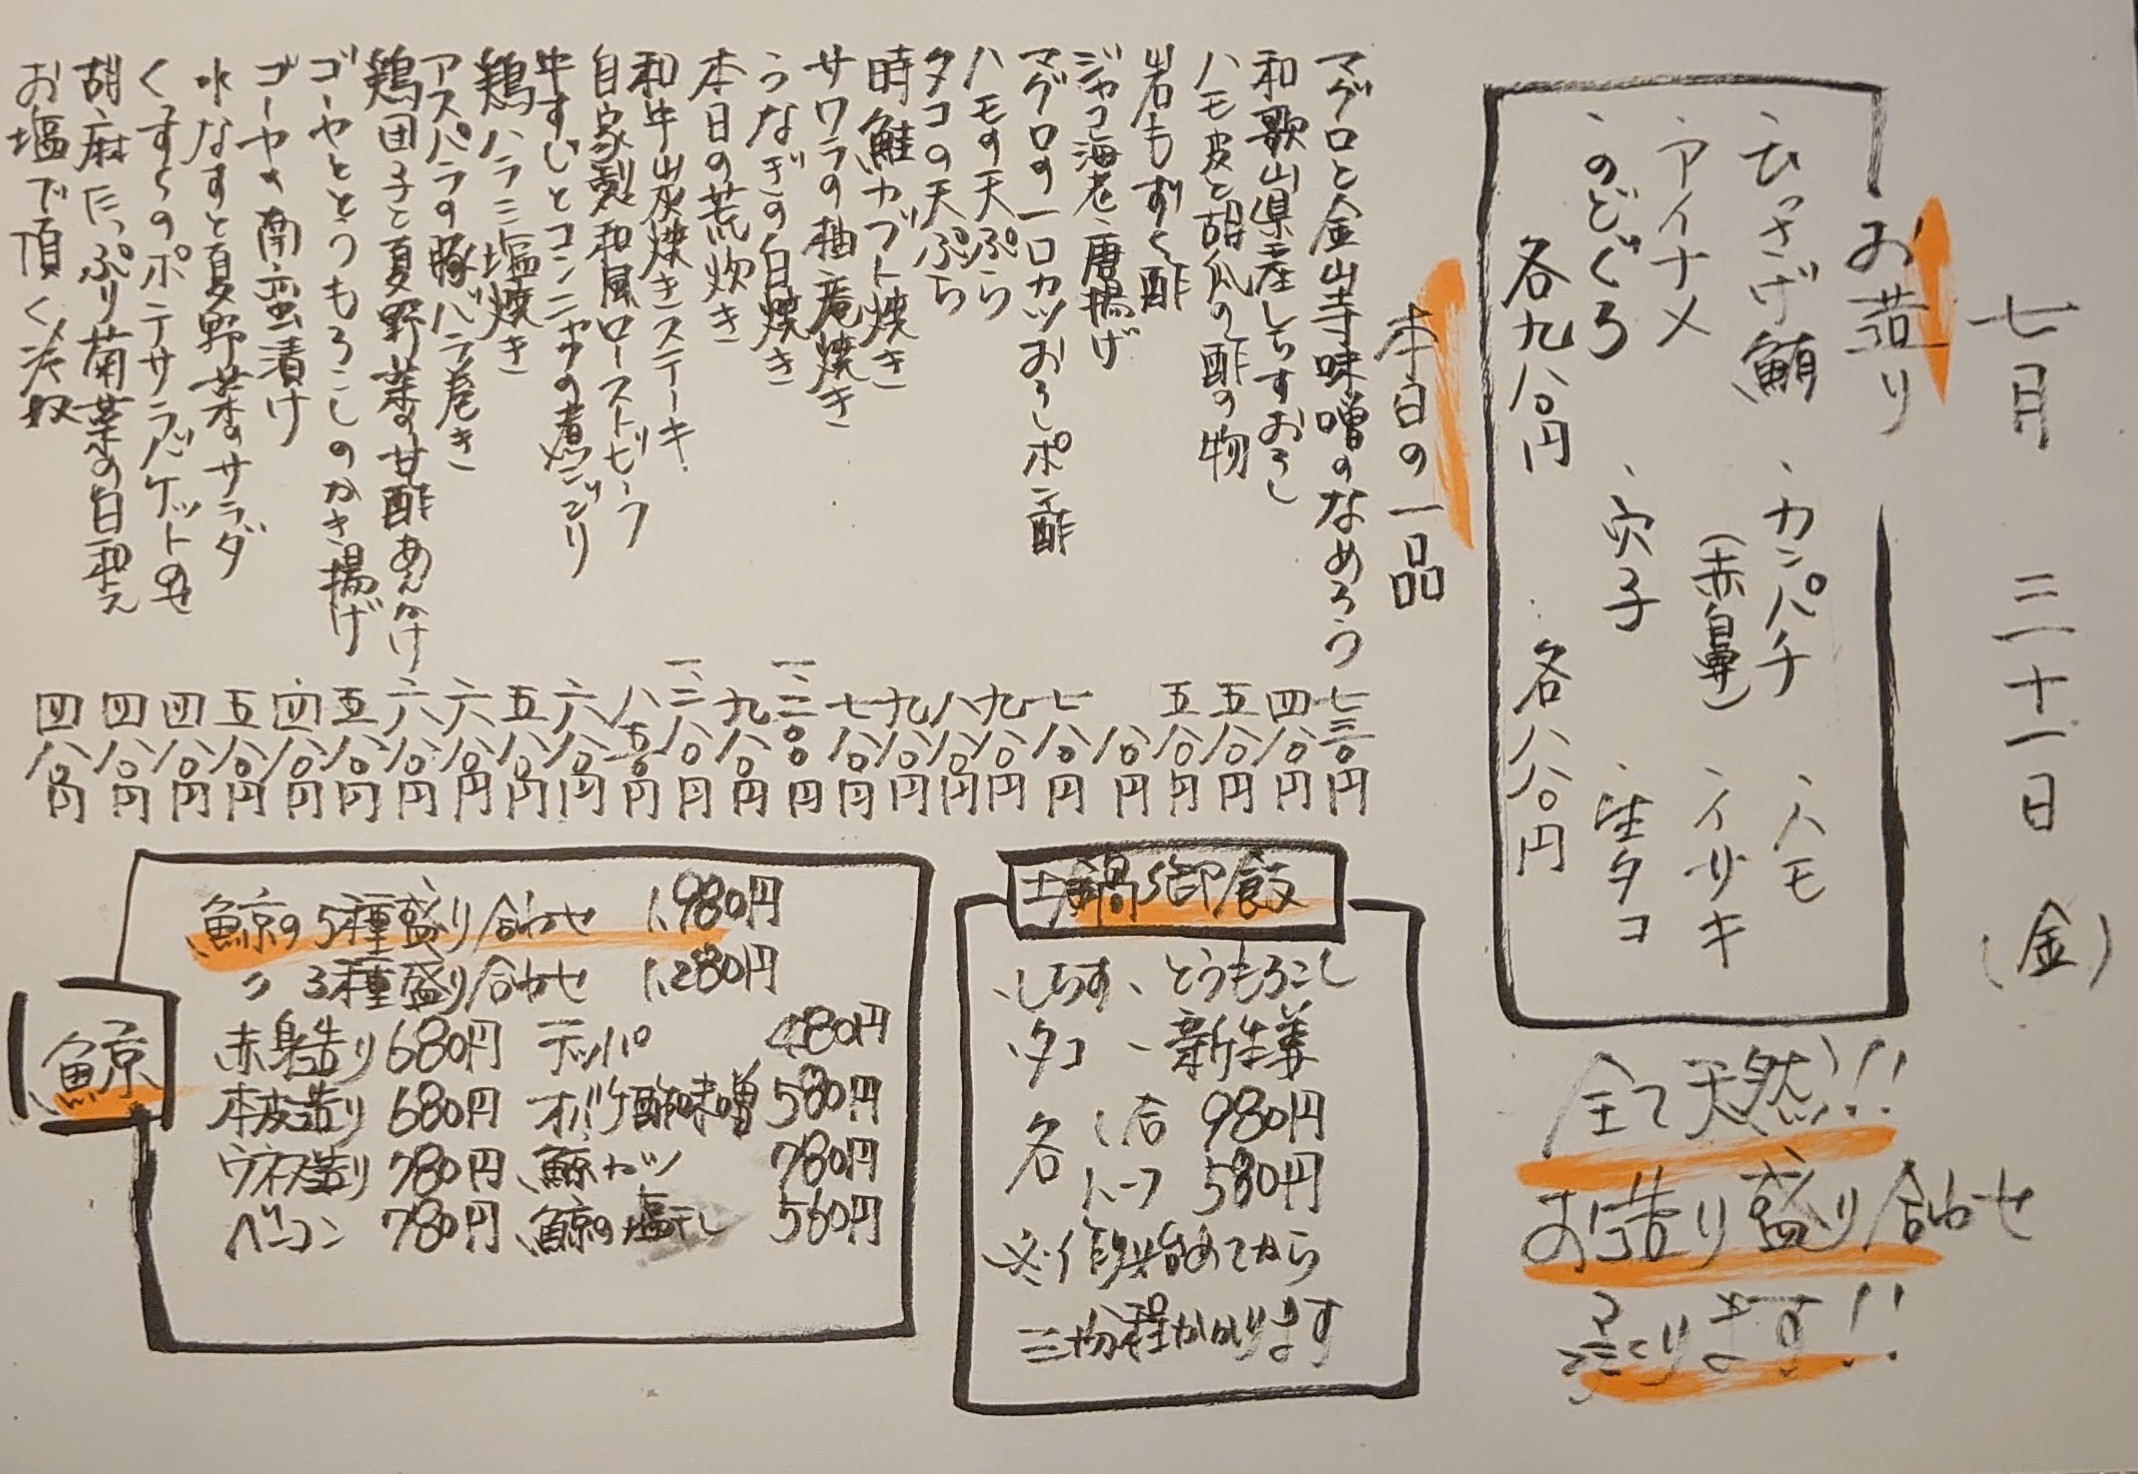 七月 三十一日 (金)
お造り
、ひっさげ鮪 、カンパチ 、ハモ
、アイナメ (赤鼻) 、イサキ
、のどぐろ 、穴子 、生タコ
各九八〇円 各八八〇円
全て天然!!
お造り盛り合わせ
承ります!!
本日の一品
マグロと金山寺味噌のなめろう 七三〇円
和歌山県産しらすおろし 四八〇円
ハモ皮と胡瓜の酢の物 五八〇円
岩もずく酢 五八〇円
ジャコ海老唐揚げ 八〇円
マグロの一口カツおろしポン酢 七八〇円
ハモの天ぷら 九八〇円
タコの天ぷら 八八〇円
時鮭カブト焼き 九八〇円
サワラの柚庵焼き 七八〇円
うなぎの白焼き 一、二〇〇円
本日の荒炊き 九八〇円
和牛炭焼きステーキ 一、三八〇円
自家製和風ローストビーフ 八五〇円
牛すじとコンニャクの煮こごり 六八〇円
鶏ハラミ塩焼き 五八〇円
アスパラの豚バラ巻き 六八〇円
鶏団子と夏野菜の甘酢あんかけ 六八〇円
ゴーヤととうもろこしのかき揚げ 五八〇円
ゴーヤの南蛮漬け 四八〇円
水なすと夏野菜のサラダ 五八〇円
くずしのポテサラバケットのせ 四八〇円
胡麻たっぷり菊菜の白和え 四八〇円
お塩で頂く冷奴 四八〇円
土鍋御飯
、しらす、とうもろこし
、タコ 、新生姜
各 1合 980円
ハーフ 580円
※作り始めてから
三十分程かかります
鯨
鯨の5種盛り合わせ 1,980円
〃 3種盛り合わせ 1,280円
赤身造り 680円 テッパ 480円
本皮造り 680円 オバケ酢味噌 580円
ウネス造り 780円 鯨カツ 780円
ベーコン 780円 鯨の塩干し 560円